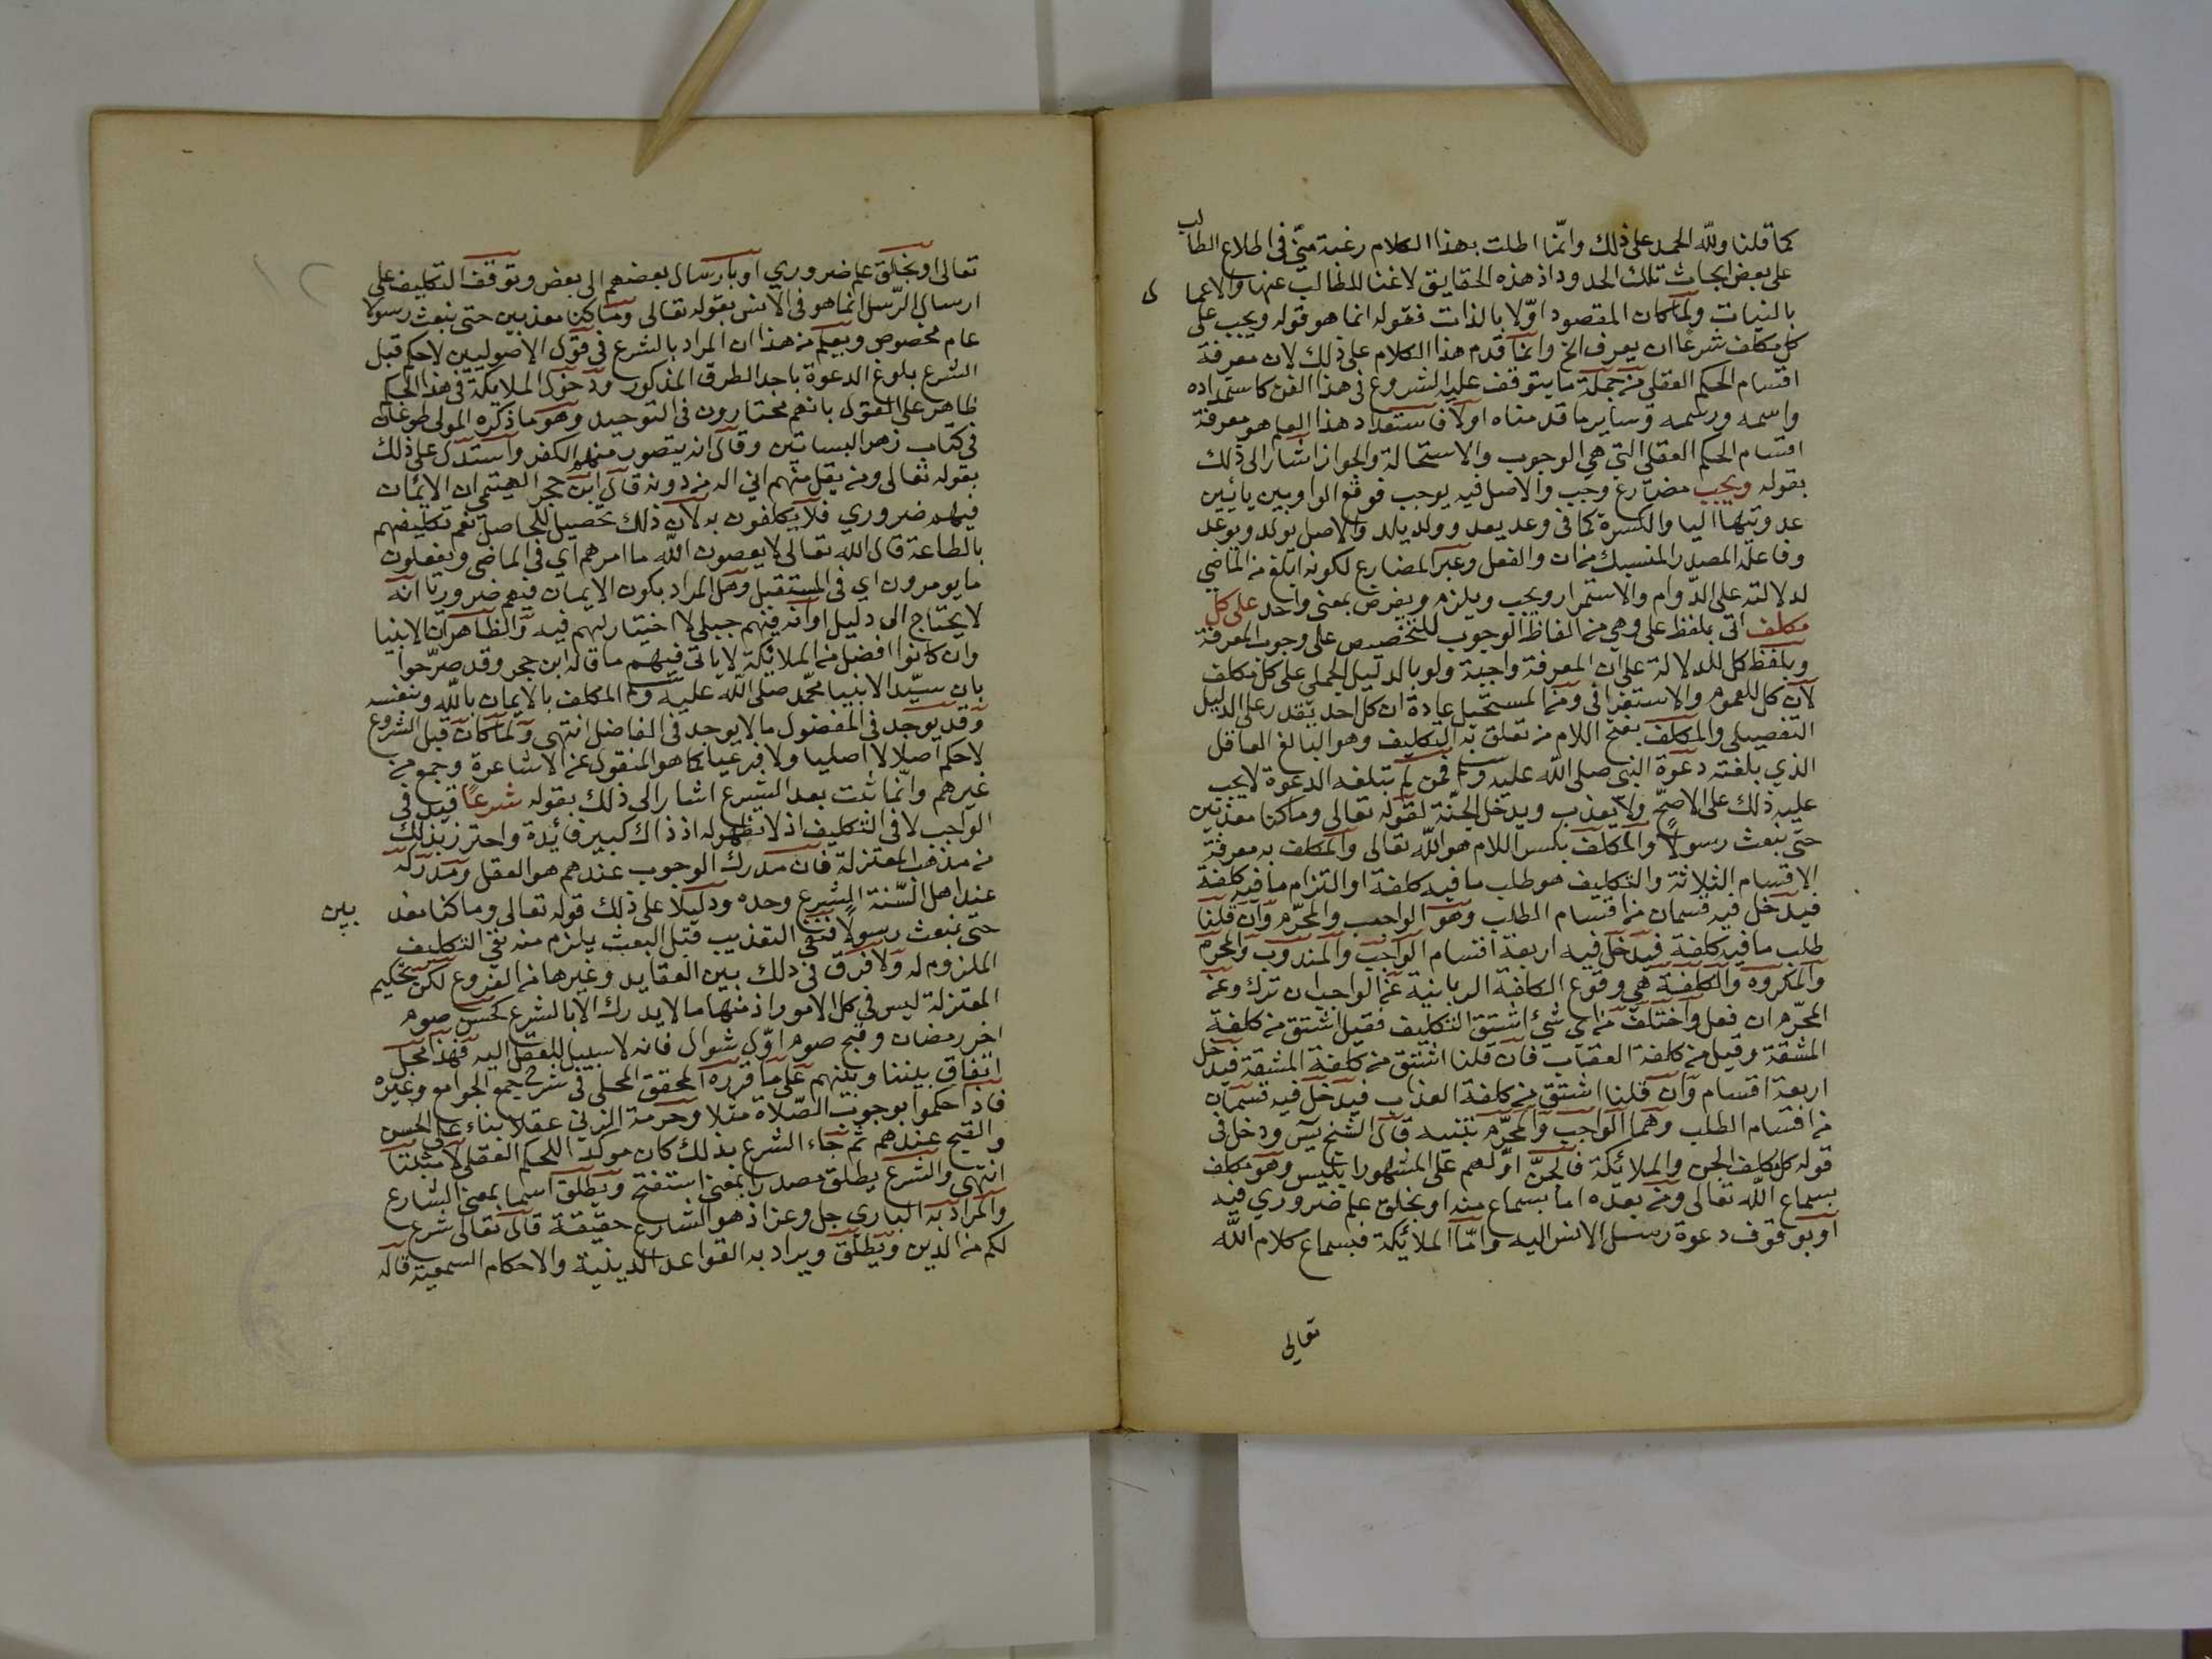 كما قلنا ولله الحمد على ذلك وانّما اطلت بهذا الكلام رغبة منّي في اطلاع الطالب
على بعض ابحاث تلك الحدود اذ هذه الحقايق لا غنا للطالب عنها والاعما ل
بالنيات ولما كان المقصود اوّلا بالذات فقوله انما هو قوله ويجب على
كل مكلف شرعًا ان يعرف الخ وانما قدم هذا الكلام على ذلك لان معرفة
اقسام الحكم العقلي من جملة ما يتوقف عليه الشروع في هذا الفن كاستمداده
واسمه ورسمه وساير ما قدمناه اولا فاستمداد هذا العلم هو معرفة
اقسام الحكم العقلي التي هي الوجوب والاستحالة والجواز اشار الى ذلك
بقوله ويجب مضارع وجب والاصل فيه يوجب فوقع الواو بين يائين
عدوتيها اليا والكسرة كما في وعد يعد وولد يلد والاصل يولد ويوعد
وفاعله المصدر المنسبك من ان والفعل وعبر المضارع لكونه ابلغ من الماضي
لدلالته على الدّوام والاستمرار ويجب ويلزم ويفرض بمعنى واحد على كل
مكلف اتى بلفظ على وهي من الفاظ الوجوب للتخصيص على وجوب المعرفة
وبلفظ كل للدلالة على ان المعرفة واجبة ولو بالدليل الجملي على كل مكلف
لان كل للعموم والاستغراق ومن المستحيل عادة ان كل احد يقدر على الدليل
التفصيلي والمكلف بفتح اللام من تعلق به التكليف وهو البالغ العاقل
الذي بلغته دعوة النبي صلى الله عليه وسلم فمن لم تبلغه الدعوة لا يجب
عليه ذلك على الاصحّ ولا يعذب ويدخل الجنّة لقوله تعالى وما كنا معذبين
حتى نبعث رسولا والمكلف بكسر اللام هو الله تعالى والمكلف به معرفة
الاقسام الثلاثة والتكليف هو طلب ما فيه كلفة او التزام ما فيه كلفة
فيدخل فيه قسمان من اقسام الطلب وهو الواجب والمحرّم وان قلنا
طلب ما فيه كلفة فيدخل فيه اربعة اقسام الواجب والمندوب والمحرم
والمكروه والكلفة هي وقوع الكافة الربانية عن الواجب ان ترك وعن
المحرّم ان فعل واختلف من اي شيء اشتق التكليف فقيل اشتق من كلفة
المشقة وقيل من كلفة العقاب فان قلنا اشتق من كلفة المشقة فيدخل
اربعة اقسام وان قلنا اشتق من كلفة العذاب فيدخل فيه قسمان
من اقسام الطلب وهما الواجب والمحرّم تنبيه قال الشيخ يس ودخل في
قوله كل مكلف الجن والملائكة فالجنّ اوّلهم على المشهور ابليس وهو مكلف
بسماع الله تعالى ومن بعده اما بسماع منه او بخلق علم ضروري فيه
او بوقوف دعوة رسل الانس اليه وامّا الملائكة فبسماع كلام الله
تعالى
تعالى او بخلق علم ضروري او بارسال بعضهم الى بعض وتوقف التكليف على
ارسال الرّسل انما هو في الانس بقوله تعالى وما كنا معذبين حتى نبعث رسولا
عام مخصوص ويعلم من هذا ان المراد بالشرع في قول الاصوليين لا حكم قبل
الشرع بلوغ الدعوة باحد الطرق المذكور ودخول الملائكة في هذا الحكم
ظاهر على القول بانهم مختارون في التوحيد وهو ما ذكره المولى طوغان
في كتاب زهر البساتين وقال انه يتصور منهم الكفر واستدل على ذلك
بقوله تعالى ومن يقل منهم اني اله من دونه قال ابن حجر الهيتمي ان الايمان
فيهم ضروري فلا يكلفون به لان ذلك تحصيل للحاصل نعم تكليفهم
بالطاعة قال الله تعالى لا يعصون الله ما امرهم اي في الماضي ويفعلون
ما يومرون اي في المستقبل وهل المراد بكون الايمان فيهم ضروريًا انه
لا يحتاج الى دليل او انه فيهم جبلي لا اختيار لهم فيه والظاهر ان الانبيا
وان كانوا افضل من الملائكة لا ياتي فيهم ما قاله ابن حجر وقد صرّحوا
بان سيّد الانبيا محمّد صلى الله عليه وسلم المكلف بالايمان بالله وبنفسه
وقد يوجد في المفضول ما لا يوجد في الفاضل انتهى ولما كان قبل الشروع
لا حكم اصلا لا اصليا ولا فرعيا كما هو المنقول عن الاشاعرة وجمع من
غيرهم وانّما ثبت بعد الشرع اشار الى ذلك بقوله شرعًا قيل في
الواجب لا في التكليف اذ لا تظهر له اذ ذاك كبير فائدة واحترز بذلك
من مذهب المعتزلة فان مدرك الوجوب عندهم هو العقل ومدركه
عند اهل السّنة الشرع وحده ودليلا على ذلك قوله تعالى وما كنا معذ بين
حتى نبعث رسولا فنفي التعذيب قبل البعث يلزم منه نفي التكليف
الملزوم له ولا فرق في ذلك بين العقايد وغيرها من الفروع لكن تحكيم
المعتزلة ليس في كل الامور اذ منها ما لا يدرك الا بالشرع كحسن صوم
اخر رمضان وقبح صوم اوّل شوال فانه لا سبيل للعقل اليه فهذا محل
اتفاق بيننا وبينهم على ما قرره المحقق المحلي في شرح جمع الجوامع وغيره
فاذا حكموا بوجوب الصّلاة مثلا وحرمة الزنى عقلا بناء على الحسن
والقبح عندهم ثم جاء الشرع بذلك كان موكد اللحكم العقلي لا مثبتا
انتهى والشرع يطلق مصدرا بمعنى استفتح ويطلق اسما بمعنى الشارع
والمراد به الباري جل وعز اذ هو الشارع حقيقة قال تعالى شرع
لكم من الدين ويطلق ويراد به القواعد الدينية والاحكام السمعية قاله